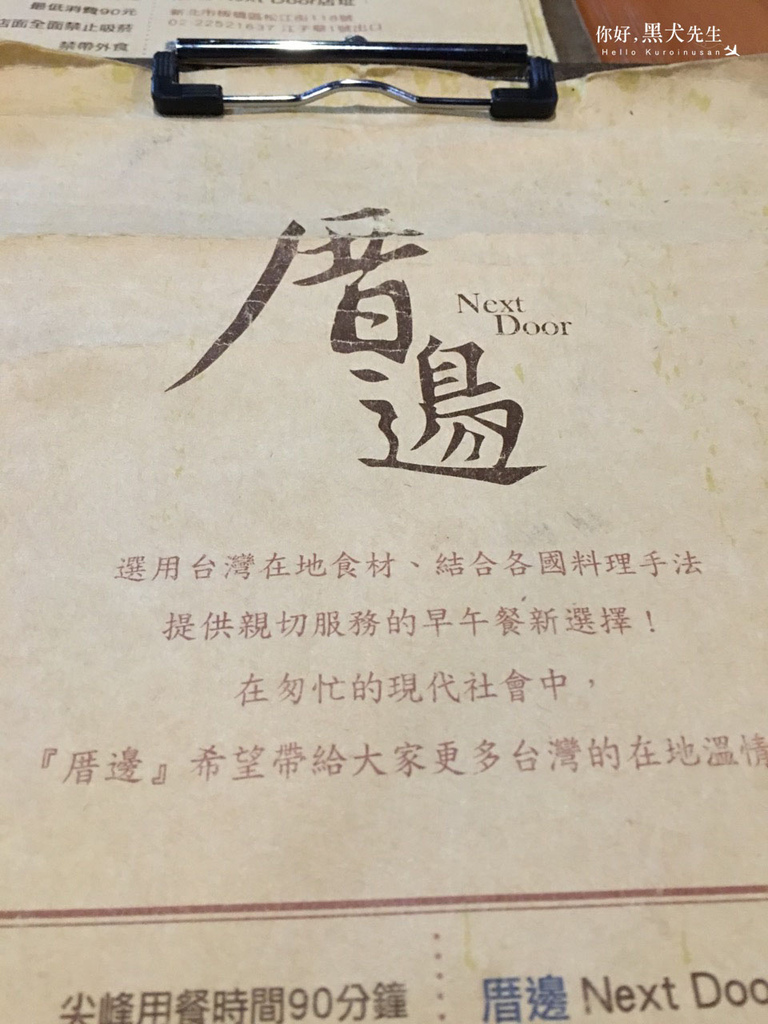 最低消費90元
店面全面禁止吸菸
禁帶外食
Next Door店址
新北市板橋區松江街118號
02-22521637 江子翠1號出口
你好,黑犬先生
Hello Kuroinusan
厝邊
Next
Door
選用台灣在地食材、結合各國料理手法
提供親切服務的早午餐新選擇！
在匆忙的現代社會中，
『厝邊』希望帶給大家更多台灣的在地溫情
尖峰用餐時間90分鐘
厝邊 Next Doo